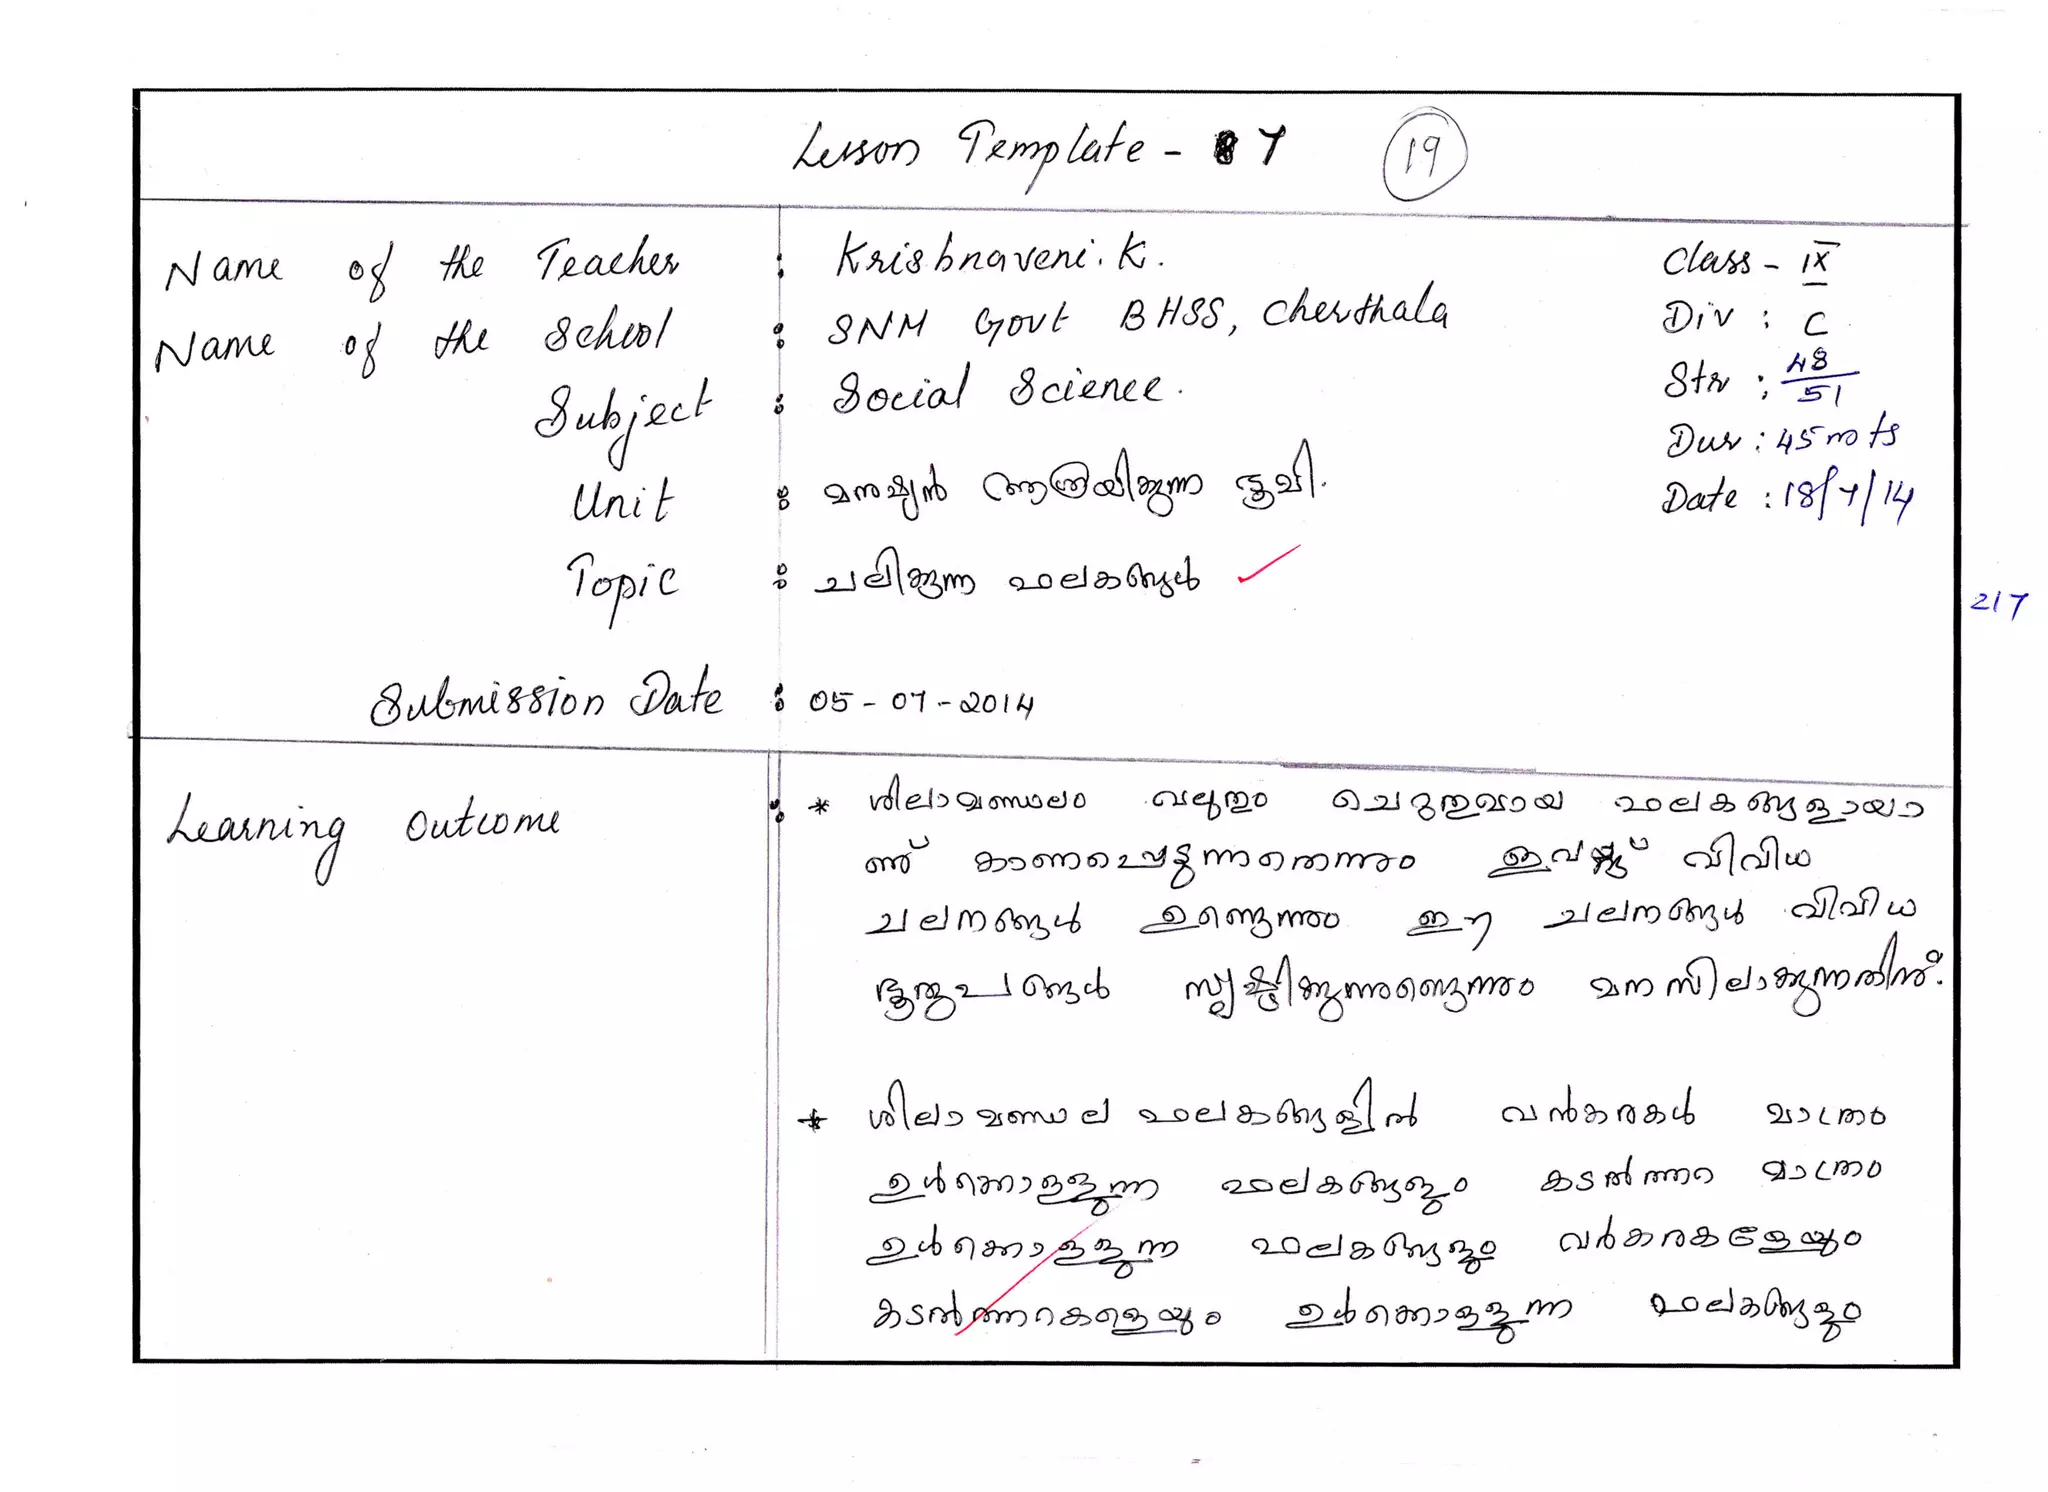 Lesson Template - 7
19
Name of the Teacher : Krishnaveni. K.
Class - IX
Name of the School : SNM Govt BHSS, Cherthala
Div : C
Subject : Social Science.
Str : 48/51
Dur : 45 mts
Unit : മനുഷ്യൻ ആശ്രയിക്കുന്ന ഭൂമി.
Date : 18/7/14
Topic : ചലിക്കുന്ന ഫലകങ്ങൾ
217
Submission Date : 05-07-2014
Learning Outcome : * ശിലാമണ്ഡലം വലുതും ചെറുതുമായ ഫലകങ്ങളായാ
ണ് കാണപ്പെടുന്നതെന്നും ഇവയ്ക്ക് വിവിധ
ചലനങ്ങൾ ഉണ്ടെന്നും ഈ ചലനങ്ങൾ വിവിധ
ഭൂരൂപങ്ങൾ സൃഷ്ടിക്കുന്നുണ്ടെന്നും മനസിലാക്കുന്നതിന്.
* ശിലാമണ്ഡല ഫലകങ്ങളിൽ വൻകരകൾ മാത്രം
ഉൾക്കൊള്ളുന്ന ഫലകങ്ങളും കടൽത്തറ മാത്രം
ഉൾക്കൊള്ളുന്ന ഫലകങ്ങളും വൻകരകളേയും
കടൽത്തറകളെയും ഉൾക്കൊള്ളുന്ന ഫലകങ്ങളും